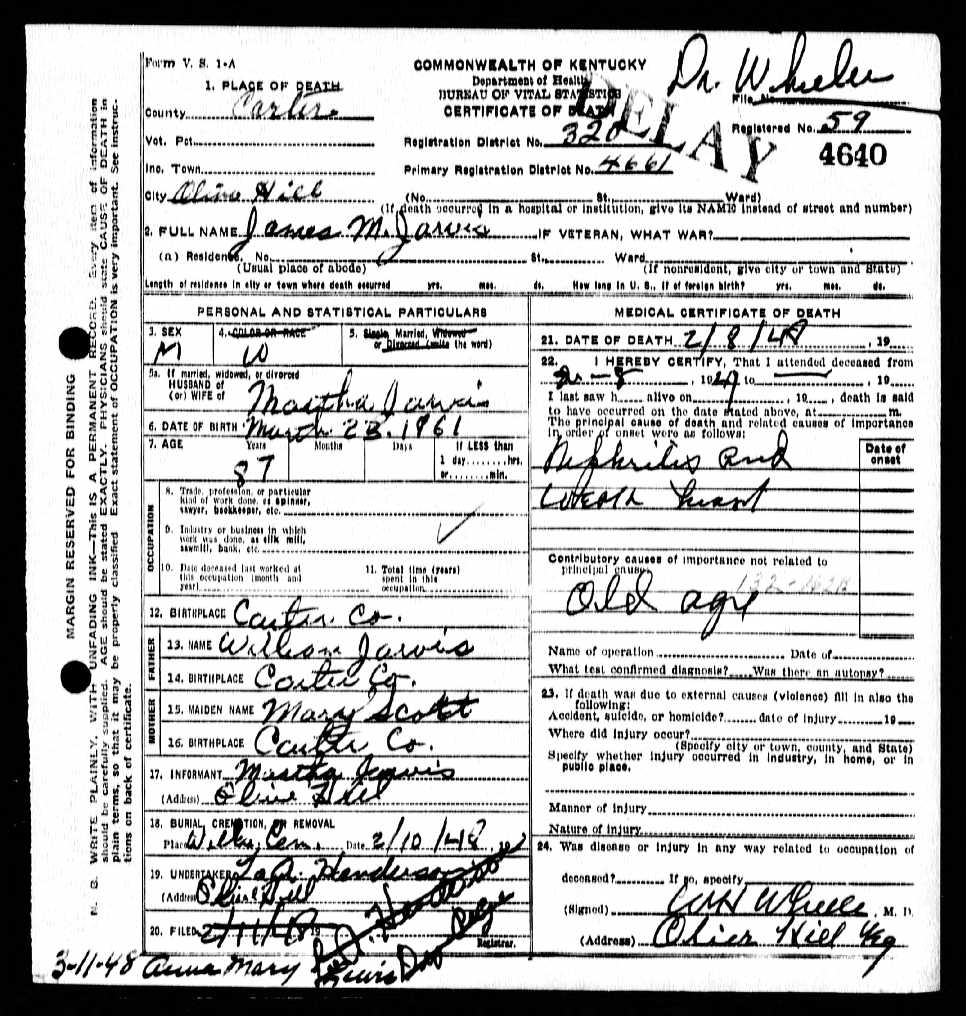 Form V. S. 1-A
COMMONWEALTH OF KENTUCKY
Department of Health
BUREAU OF VITAL STATISTICS
CERTIFICATE OF DEATH
DELAY
Dr. Wheeler
File No.
Registered No. 59
4640
1. PLACE OF DEATH
County Carter
Vot. Pct.
Inc. Town
City Olive Hill
Registration District No. 320
Primary Registration District No. 4661
(No. St. Ward)
(If death occurred in a hospital or institution, give its NAME instead of street and number)
2. FULL NAME James M. Jarvis IF VETERAN, WHAT WAR?
(a) Residence. No. St. Ward
(Usual place of abode) (If nonresident, give city or town and State)
Length of residence in city or town where death occurred yrs. mos. ds. How long in U. S., if of foreign birth? yrs. mos. ds.
PERSONAL AND STATISTICAL PARTICULARS
3. SEX M
4. COLOR OR RACE W
5. Single, Married, Widowed
or Divorced (write the word)
5a. If married, widowed, or divorced
HUSBAND of
(or) WIFE of Martha Jarvis
6. DATE OF BIRTH March 23, 1861
7. AGE Years Months Days If LESS than
87 1 day, hrs.
or min.
OCCUPATION
8. Trade, profession, or particular
kind of work done, as spinner,
sawyer, bookkeeper, etc.
9. Industry or business in which
work was done, as silk mill,
sawmill, bank, etc.
10. Date deceased last worked at
this occupation (month and
year)
11. Total time (years)
spent in this
occupation
12. BIRTHPLACE Carter Co.
FATHER
13. NAME William Jarvis
14. BIRTHPLACE Carter Co.
MOTHER
15. MAIDEN NAME Mary Scott
16. BIRTHPLACE Carter Co.
17. INFORMANT Martha Jarvis
(Address) Olive Hill
18. BURIAL, CREMATION, OR REMOVAL
Place Cem. Date 2/10/48 19
19. UNDERTAKER Henderson
(Address) Olive Hill
20. FILED 2/11/48 19
Registrar.
3-11-48 Anna Mary Lewis
MEDICAL CERTIFICATE OF DEATH
21. DATE OF DEATH 2/8/48, 19
22. I HEREBY CERTIFY, That I attended deceased from
, 19 to , 19
I last saw h alive on , 19 , death is said
to have occurred on the date stated above, at m.
The principal cause of death and related causes of importance
in order of onset were as follows:
Date of
onset
Nephritis and
weak heart
Contributory causes of importance not related to
principal cause:
Old age
Name of operation Date of
What test confirmed diagnosis? Was there an autopsy?
23. If death was due to external causes (violence) fill in also the
following:
Accident, suicide, or homicide? date of injury 19
Where did injury occur?
(Specify city or town, county, and State)
Specify whether injury occurred in industry, in home, or in
public place.
Manner of injury
Nature of injury
24. Was disease or injury in any way related to occupation of
deceased? If so, specify
(Signed) W H Wheeler, M. D.
(Address) Olive Hill Ky
MARGIN RESERVED FOR BINDING
N. B. WRITE PLAINLY, WITH UNFADING INK—THIS IS A PERMANENT RECORD. Every item of information
should be carefully supplied. AGE should be stated EXACTLY. PHYSICIANS should state CAUSE OF DEATH in
plain terms, so that it may be properly classified. Exact statement of OCCUPATION is very important. See instruc-
tions on back of certificate.